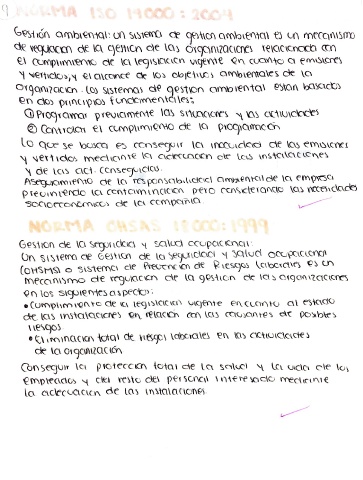 NORMA ISO 14000 : 2004
Gestión ambiental: un sistema de gestion ambiental es un mecanismo
de regulacion de la gestion de las organizaciones relacionada con
el cumplimiento de la legislacion vigente en cuanto a emisiones
y vertidos, y el alcance de los objetivos ambientales de la
organizacion. Los sistemas de gestion ambiental estan basados
en dos principios fundamentales:
① Programar previamente las situaciones y las actividades
② Controlar el cumplimiento de la programacion
Lo que se busca es conseguir la inocuidad de las emisiones
y vertidos mediante la adecuacion de las instalaciones
y de las act. conseguidas.
Aseguramiento de la responsabilidad ambiental de la empresa
previniendo la contaminacion pero considerando las necesidades
socioeconomicas de la compañia.
NORMA OHSAS 18000: 1999
Gestion de la seguridad y salud ocupacional:
Un sistema de Gestion de la seguridad y Salud ocupacional
(OHSMS) o sistema de Prevencion de Riesgos laborales es un
mecanismo de regulacion de la gestion de las organizaciones
en los siguientes aspectos:
• Cumplimiento de la legislacion vigente en cuanto al estado
de las instalaciones en relacion con las causantes de posibles
riesgos
• Eliminacion total de riesgos laborales en las actividades
de la organización
Conseguir la proteccion total de la salud y la vida de los
empleados y del resto del personal interesado mediante
la adecuacion de las instalaciones.